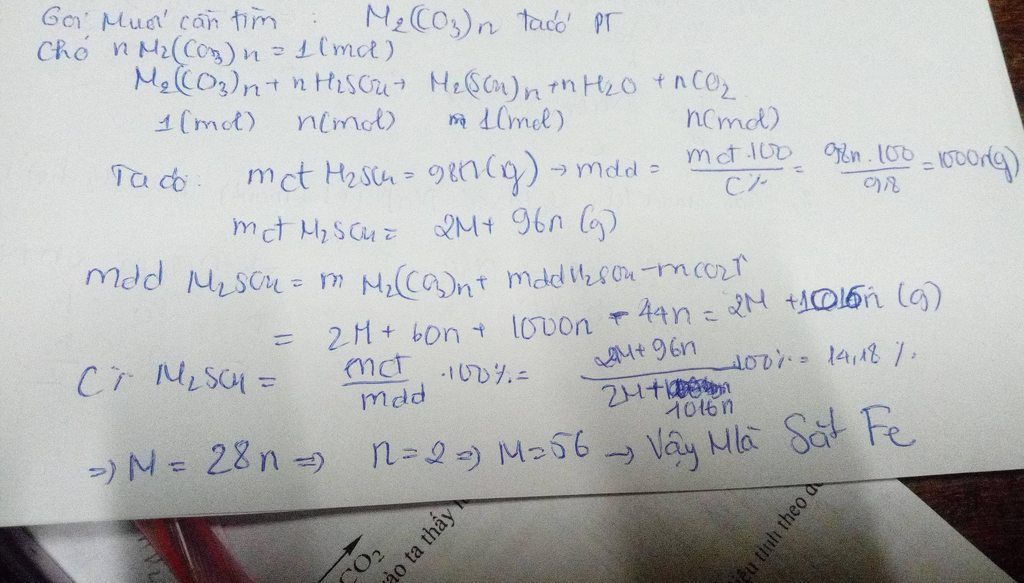 Gọi Muối cần tìm : M2(CO3)n ta có PT
Cho n M2(CO3)n = 1(mol)
M2(CO3)n + nH2SO4 → M2(SO4)n + nH2O + nCO2
1(mol) n(mol) 1(mol) n(mol)
Ta có: mct H2SO4 = 98n(g) → mdd = mct.100 / C% = 98n.100 / 9,8 = 1000n(g)
mct M2SO4 = 2M + 96n (g)
mdd M2SO4 = m M2(CO3)n + mdd H2SO4 - mCO2↑
= 2M + 60n + 1000n - 44n = 2M + 1016n (g)
C% M2SO4 = mct / mdd .100% = 2M+96n / 2M+1016n 100% = 14,18 %.
=> M = 28n => n=2 => M=56 → Vậy M là Sắt Fe
CO2
ào ta thấy
tính theo